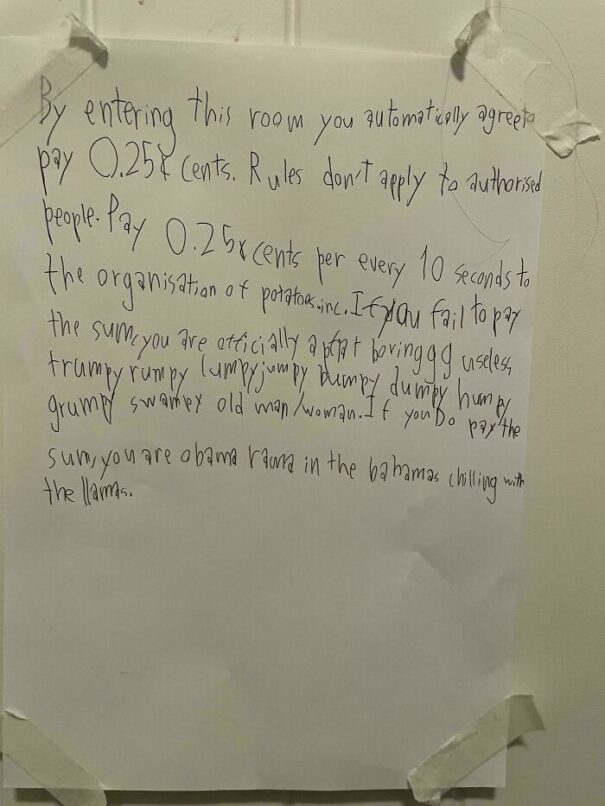 By entering this room you automatically agree to
pay 0.25¢ cents. Rules don't apply to authorised
people. Pay 0.25¢ cents per every 10 seconds to
the organisation of potatoes.inc. If you fail to pay
the sum, you are officially a fat boring gg useless
trumpy rumpy lumpy jumpy bumpy dumpy humpy
grumpy swampey old man/woman. If you Do pay the
sum, you are obama rama in the bahamas chilling with
the llamas.